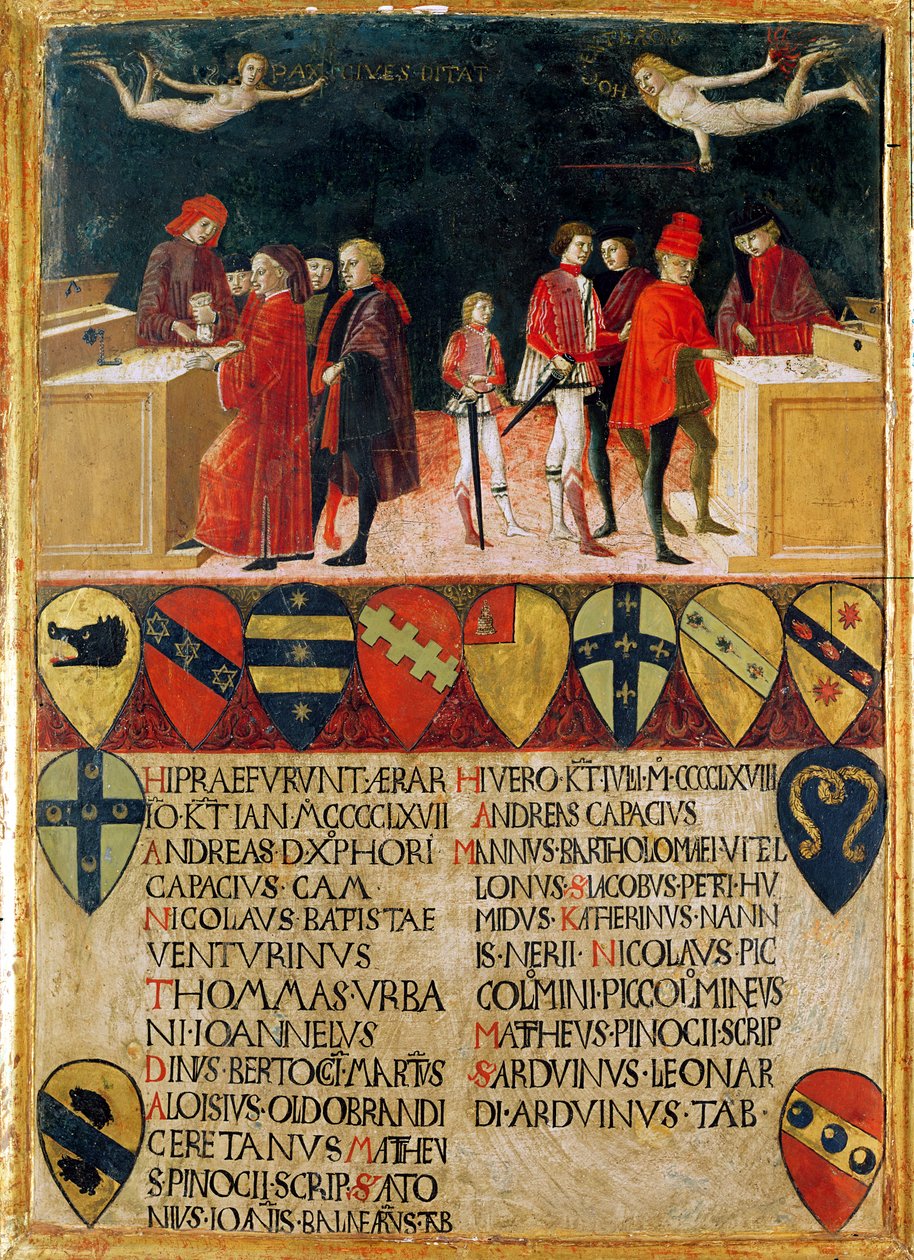 PAX CIVES DITAT
HI PRAEFVRVNT·ÆRAR
IO·KT IAN·M·CCCCLXVII
ANDREAS·D·XPHORI·
CAPACIVS·CAM·
NICOLAVS·BAPTISTAE
VENTVRINVS
THOMMAS·VRBA
NI·IOANNELVS
DINVS·BERTOCCI·MARTIVS
ALOISIVS·OLDOBRANDI
CERETANVS MATTHEV
S·PINOCII·SCRIP·S·ATO
NIVS·IOANIS·BALNEARVS·TAB
HI VERO·KT IVLI·M·CCCCLXVIII
ANDREAS CAPACIVS
MANNVS·BARTHOLOMAEI·VITEL
LONVS·S·IACOBVS·PETRI·HV
MIDVS·KATHERINVS·NANN
IS·NERII·NICOLAVS·PIC
COLMINI·PICCOLMINEVS
MATTHEVS·PINOCII·SCRIP
S·ARDVINVS·LEONAR
DI·ARDVINVS·TAB·